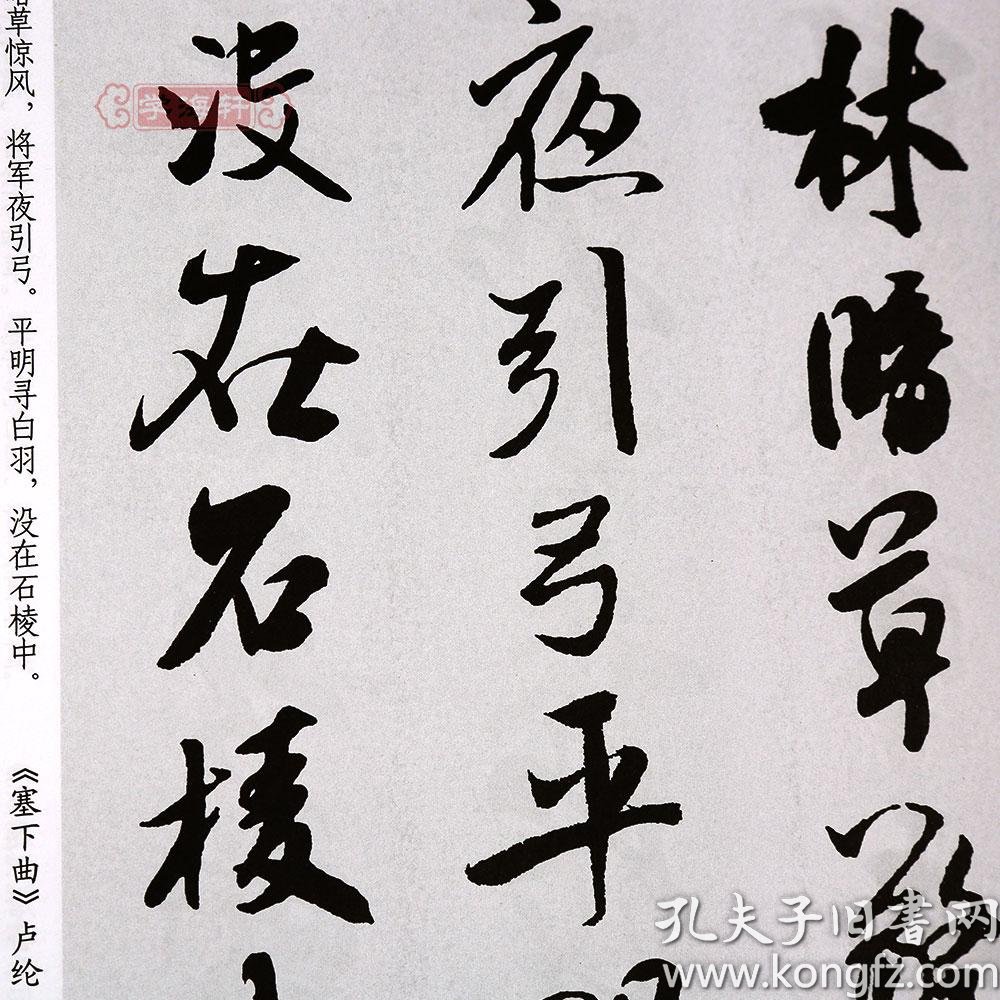 林暗草驚
夜引弓平明
没在石棱中
草惊风，将军夜引弓。平明寻白羽，没在石棱中。 《塞下曲》卢纶
学海轩
孔夫子旧书网
www.kongfz.com